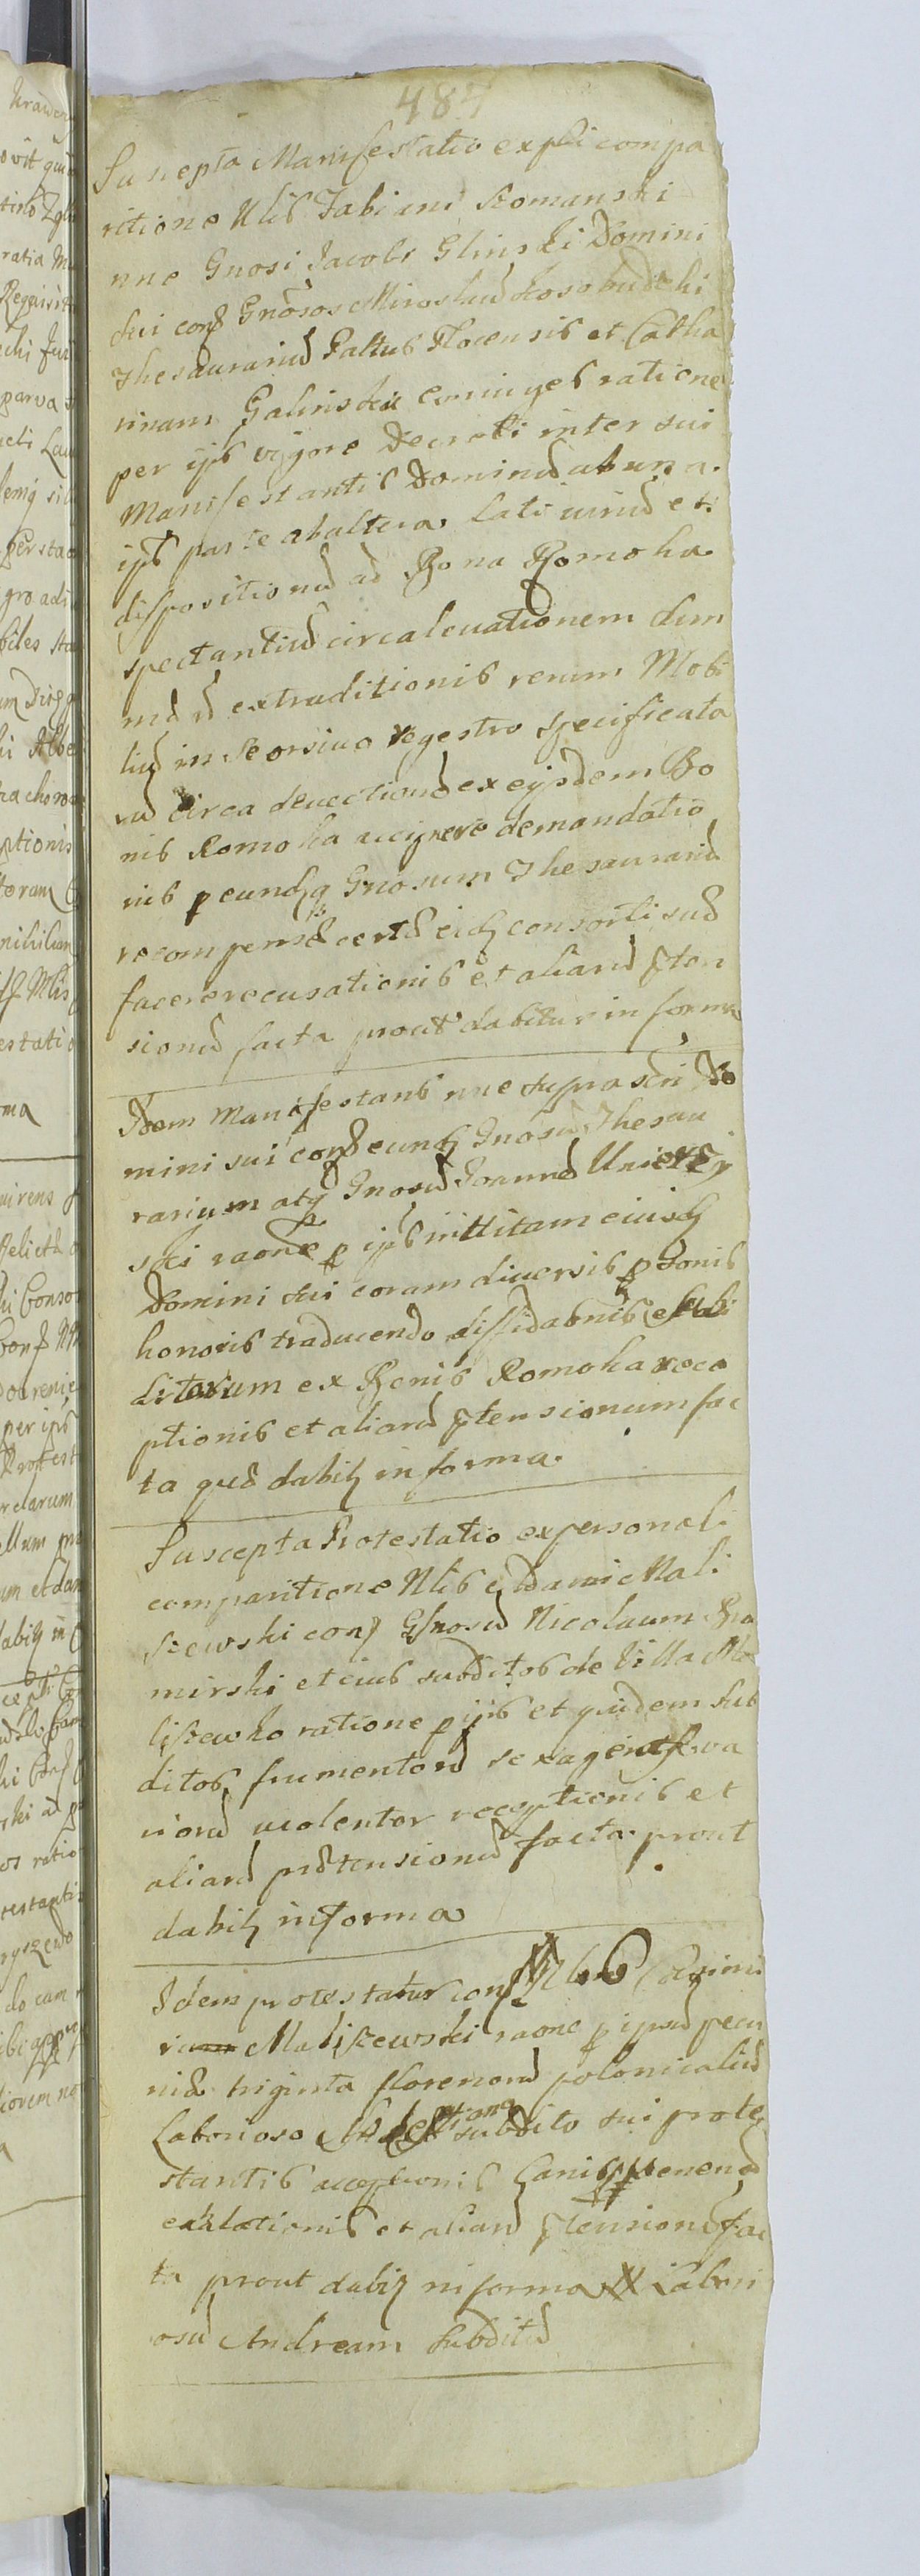 487
Suscepta Manifestatio ex pli compa
ritione Nlis Fabiani Romanski
nne Gnosi Jacobi Glinski Domini
sui con Gnosos Miroslaum Kosobudzki
Thesaurarium Paltus Plocensis et Catha
rinam Galinskie coniuges ratione
per ips vigore Decreti inter sui
Manifestantis Dominum ab una
ips parte ab altera lati et
dispositionum ad Bona Romoka
spectantium circa levationem
extraditionis rerum Mobi
lium in Seorsivo regestro specificata
rum circa devectionem ex eiusdem Bo
nis Romoka demandatio
nis p eundq Gnosum Thesaurarium
recompensam certam eidz consorti suae
facere recusationis et aliarum pten
sionum facta prout dabitur in forma
Idem Manifestans nne suprascri Do
mini sui con eundz Gnosum Thesau
rarium atq Gnosum Joannem
ski raone p ips eiusdz
Domini sui coram diversis psonis
honoris traducendo
ex Bonis Romoka rece
ptionis et aliarum ptensionum fac
ta quae dabitz in forma.
Suscepta Protestatio ex personali
comparitione Nlis Adami Mali
szewski con Gnosum Nicolaum
mirski et eius subditos de Villa Ma
liszewko ratione p ips et quidem sub
ditos frumentorum
violenter receptionis et
aliarum praetensionum facta prout
dabitz in forma
Idem protestatur con Nlem Casimi
rum Maliszewski raone p ipsum pecu
niae triginta florenorum polonicalium
Laborioso subdito sui prote
stantis acceptionis
et aliarum ptensionum fac
ta prout dabitz in forma X Labori
osum Andream Subditum